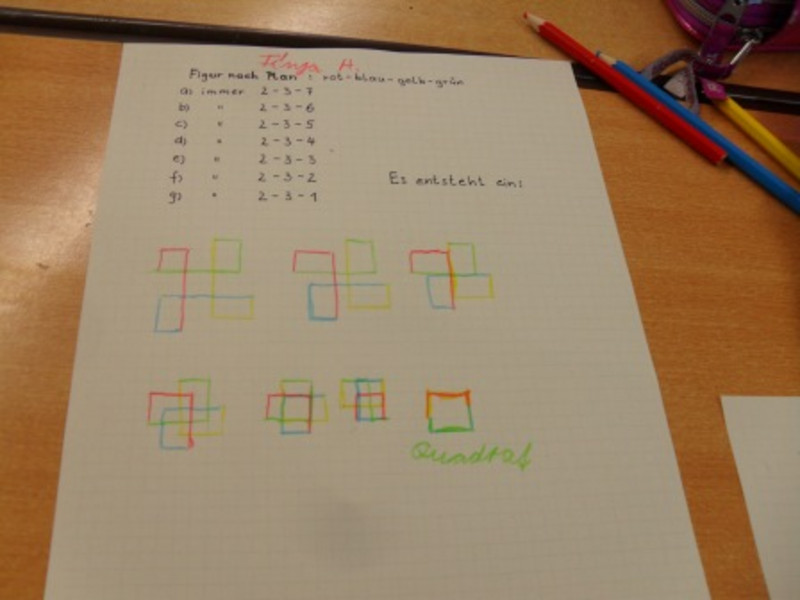 Tanja H.
Figur nach Plan : rot-blau-gelb-grün
a) immer 2-3-7
b) " 2-3-6
c) " 2-3-5
d) " 2-3-4
e) " 2-3-3
f) " 2-3-2
g) " 2-3-1
Es entsteht ein:
Quadrat